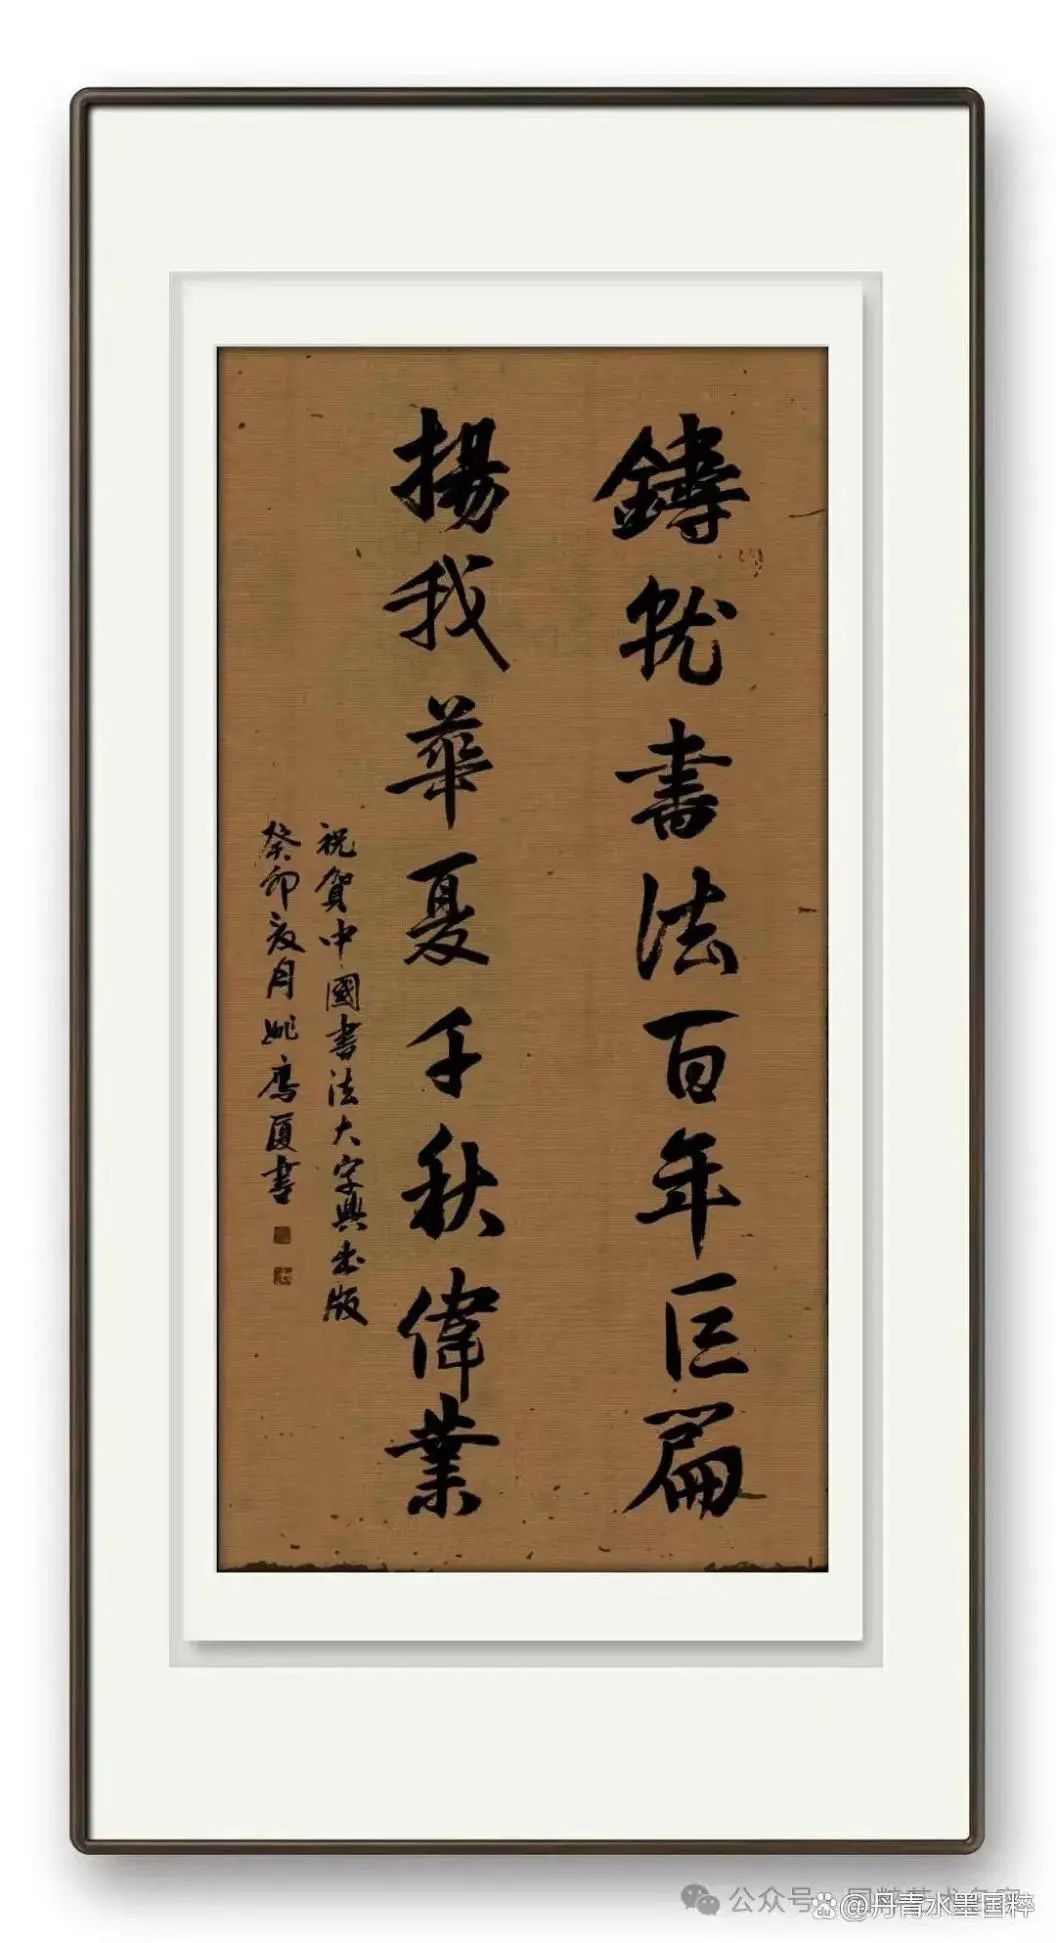 鑄就書法百年巨篇
揚我華夏千秋偉業
祝賀中國書法大字典出版
癸卯夏月姚鹰厦書
公众号
@丹青水墨国粹